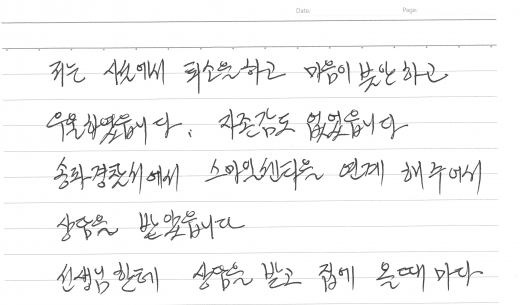 Date:   Page:
저는 시설에서 퇴소를하고 마음이 불안하고
우울하였읍니다. 자존감도 없었읍니다
송파경찰서에서 스마일센타를 연계 해주어서
상담을 받았읍니다
선생님한테 상담을 받고 집에 올때 마다